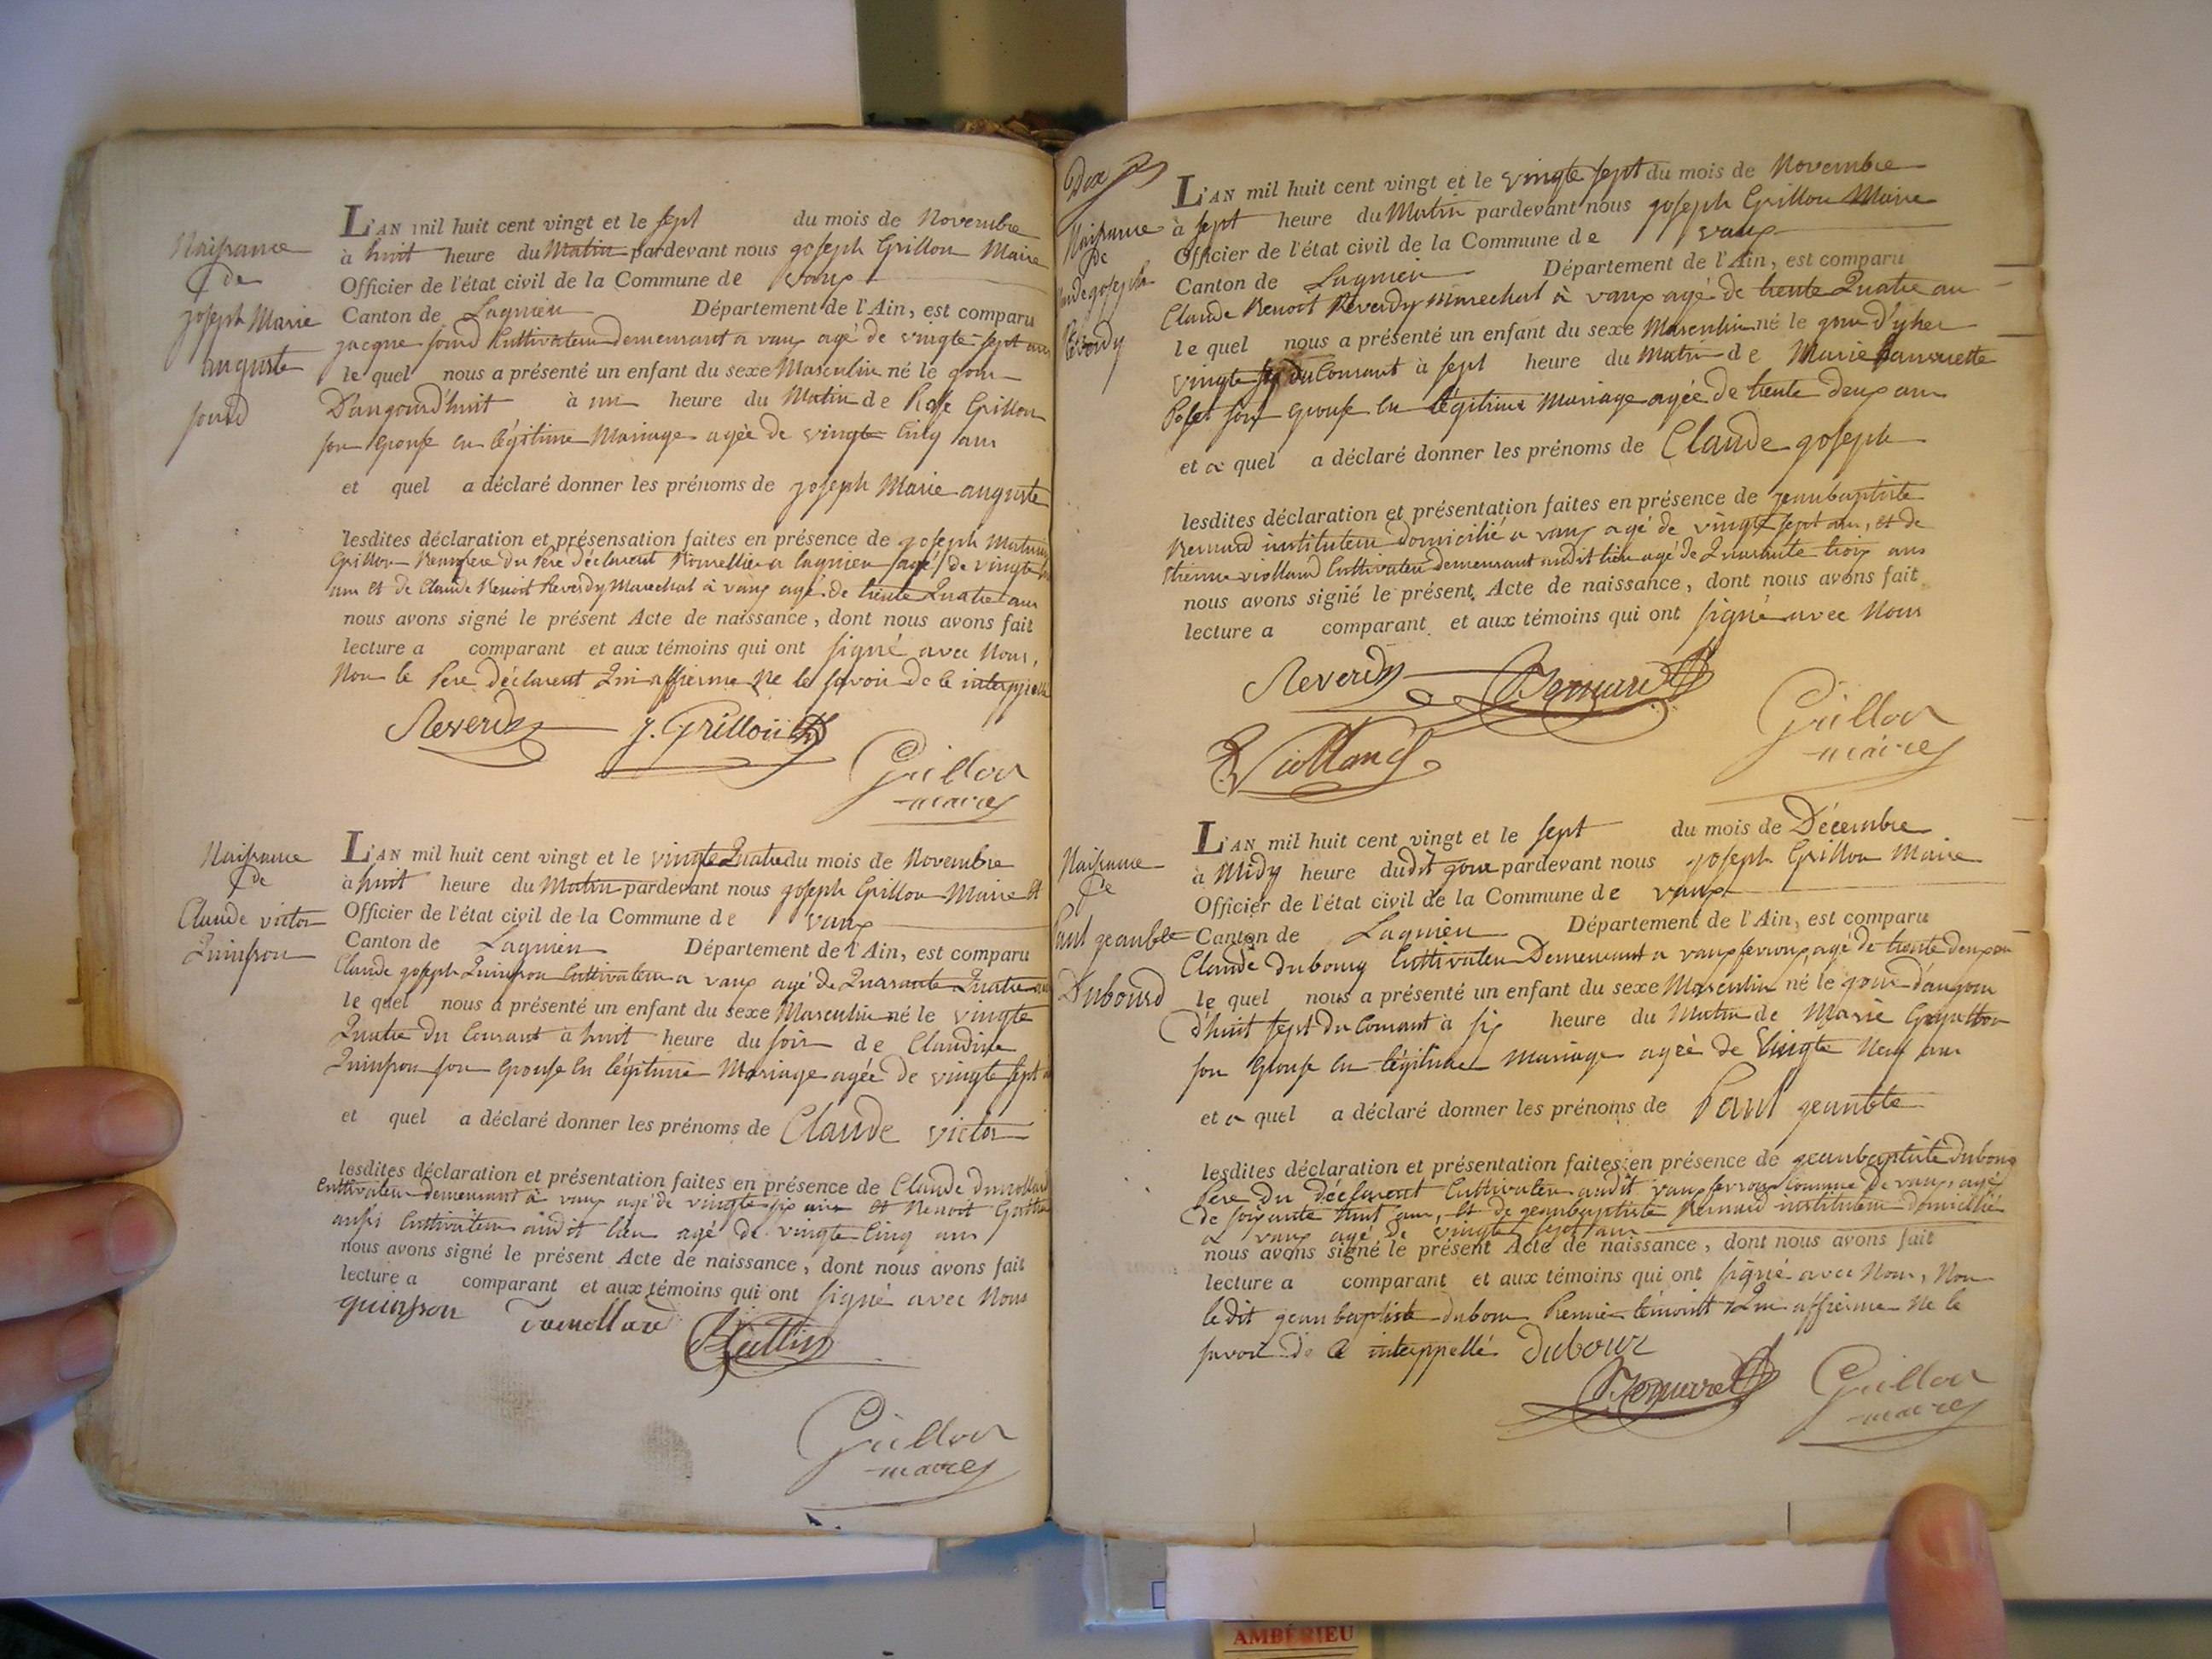 Naissance
de
joseph Marie
auguste
jourd
L'AN mil huit cent vingt et le sept du mois de Novembre
à huit heure du Matin pardevant nous joseph Grillon Maire
Officier de l'état civil de la Commune de vaux
Canton de Lagnieu Département de l'Ain, est comparu
jacque jourd Cultivateur demeurant a vaux agé de vingte sept ans
le quel nous a présenté un enfant du sexe Masculin né le jour
D'aujourd'huit à un heure du Matin de Rose Grillon
son Epouse en légitime Mariage agée de vingte cinq ans
et quel a déclaré donner les prénoms de joseph Marie auguste
lesdites déclaration et présensation faites en présence de joseph
Grillon Beaufrere du Pere déclarent a lagnieu agé de vingte
ans et de Claude Benoit Reverdy Marechal à vaux agé de trente Quatre ans
nous avons signé le présent Acte de naissance, dont nous avons fait
lecture a comparant et aux témoins qui ont signé avec Nous,
Non le Pere déclarent Qui affierme Ne le savoir de ce interppellé
Reverdy J. Grillon
Grillon
maire
Naissance
de
Claude victor
Quinson
L'AN mil huit cent vingt et le vingte Quatre du mois de Novembre
à huit heure du Matin pardevant nous joseph Grillon Maire et
Officier de l'état civil de la Commune de vaux
Canton de Lagnieu Département de l'Ain, est comparu
Claude joseph Quinson Cultivateur a vaux agé de Quarante Quatre ans
le quel nous a présenté un enfant du sexe Masculin né le vingte
Quatre du Courant à huit heure du soir de Claudine
Quinson son Epouse en légitime Mariage agée de vingte sept
et quel a déclaré donner les prénoms de Claude victor
lesdites déclaration et présentation faites en présence de Claude dumollard
Cultivateur demeurant à vaux agé de vingte six ans et Benoit
aussi Cultivateur audit lieu agé de vingte Cinq ans
nous avons signé le présent Acte de naissance, dont nous avons fait
lecture a comparant et aux témoins qui ont signé avec Nous
quinson Dumollard
Grillon
maire
Naissance
de
Claude joseph
Reverdy
L'AN mil huit cent vingt et le vingte sept du mois de Novembre
à sept heure du Matin pardevant nous joseph Grillon Maire
Officier de l'état civil de la Commune de vaux
Canton de Lagnieu Département de l'Ain, est comparu
Claude Benoit Reverdy Marechal à vaux agé de trente Quatre an
le quel nous a présenté un enfant du sexe Masculin né le jour d'yher
vingte six du Courant à sept heure du Matin de Marie
son Epouse en légitime Mariage agée de trente deux ans
et a quel a déclaré donner les prénoms de Claude joseph
lesdites déclaration et présentation faites en présence de jeanbaptiste
Bernard instituteur domicilié a vaux agé de vingte sept ans, et de
Etienne violland Cultivateur demeurant audit lieu agé de Quarante trois ans
nous avons signé le présent Acte de naissance, dont nous avons fait
lecture a comparant et aux témoins qui ont signé avec Nous
Reverdy Bernard
Violland
Grillon
maire
Naissance
de
Paul jeanbte
Dubourd
L'AN mil huit cent vingt et le sept du mois de Décembre
à Midy heure dudit jour pardevant nous joseph Grillon Maire
Officier de l'état civil de la Commune de vaux
Canton de Lagnieu Département de l'Ain, est comparu
Claude dubourg Cultivateur Demeurant a vauxfevroux agé de trente deux an
le quel nous a présenté un enfant du sexe Masculin né le jour d'aujour
d'huit sept du Courant à six heure du Matin de Marie
son Epouse en légitime mariage agée de Vingte Neuf ans
et a quel a déclaré donner les prénoms de Paul jeanbte
lesdites déclaration et présentation faites en présence de jeanbaptiste dubourg
Pere du déclarent Cultivateur audit vauxfevroux Commune de vaux agé
de soixante huit ans, et de jeanbaptiste Bernard instituteur domicilié
a vaux agé de vingte sept ans
nous avons signé le présent Acte de naissance, dont nous avons fait
lecture a comparant et aux témoins qui ont signé avec Nous, Non
ledit jeanbaptiste dubour Premier témoint Qui affierme Ne le
savoir de ce interppellé Dubour
Bernard
Grillon
maire
AMBÉRIEU